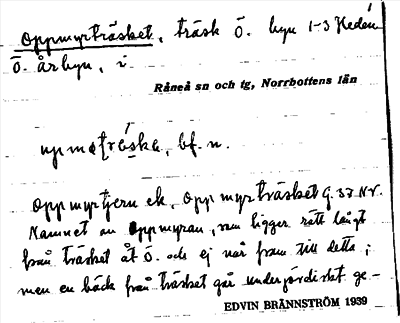 Oppmyrträsket, träsk Ö. byn 1-3 Heden
Ö. årbyn, i
Råneå sn och tg, Norrbottens län
bf. n.
Oppmyrtjern ek, Oppmyrträsket G. 37 NV.
Namnet av Oppmyran, som ligger rätt långt
från träsket åt Ö. och ej når fram till detta;
men en bäck från träsket går underjordiskt ge-
EDVIN BRÄNNSTRÖM 1939